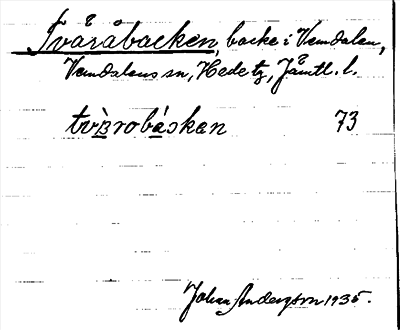 Tvåråbacken, backe i Vemdalen,
Vemdalens sn, Hede tg, Jämtl. l.
tvɜ̀robáskan 73
Johan Anderzon 1935.